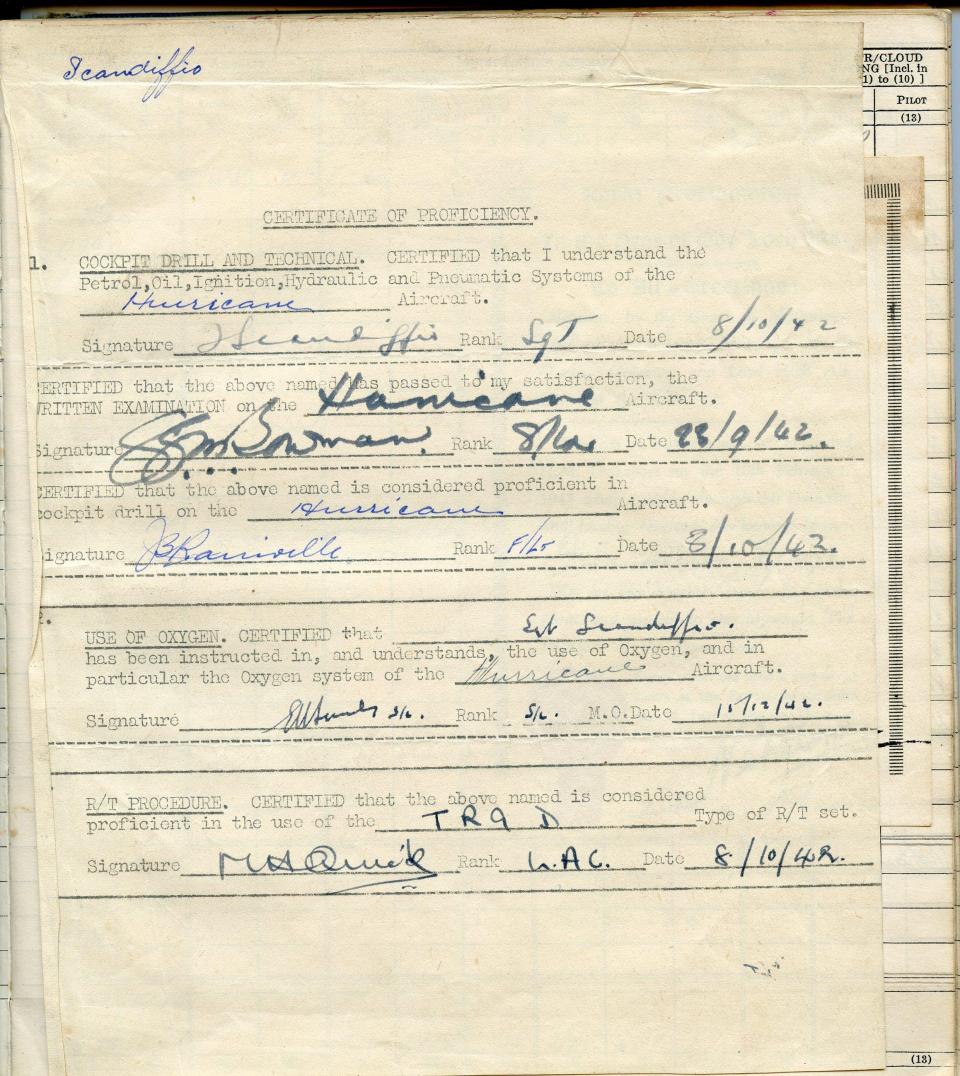 Scandiffio
R/CLOUD
NG [Incl. in
1) to (10) ]
PILOT
(13)
CERTIFICATE OF PROFICIENCY.
1. COCKPIT DRILL AND TECHNICAL. CERTIFIED that I understand the
Petrol,Oil,Ignition,Hydraulic and Pneumatic Systems of the
Hurricane Aircraft.
Signature Scandiffio Rank Sgt Date 8/10/42
ERTIFIED that the above named has passed to my satisfaction, the
RITTEN EXAMINATION on the Hurricane Aircraft.
Signature Bowman. Rank Date 23/9/42.
ERTIFIED that the above named is considered proficient in
cockpit drill on the Hurricane Aircraft.
ignature JBRainville Rank F/Lt Date 8/10/42.
USE OF OXYGEN. CERTIFIED that Sgt Scandiffio.
has been instructed in, and understands, the use of Oxygen, and in
particular the Oxygen system of the Hurricane Aircraft.
Signature S/L. Rank S/L. M.O.Date 15/12/42.
R/T PROCEDURE. CERTIFIED that the above named is considered
proficient in the use of the TR9 D Type of R/T set.
Signature MHQuick Rank L.AC. Date 8/10/42.
(13)